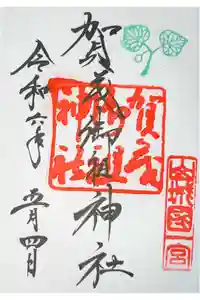 山城国一宮
賀茂御祖神社
賀茂
御祖
神社
令和六年
五月四日